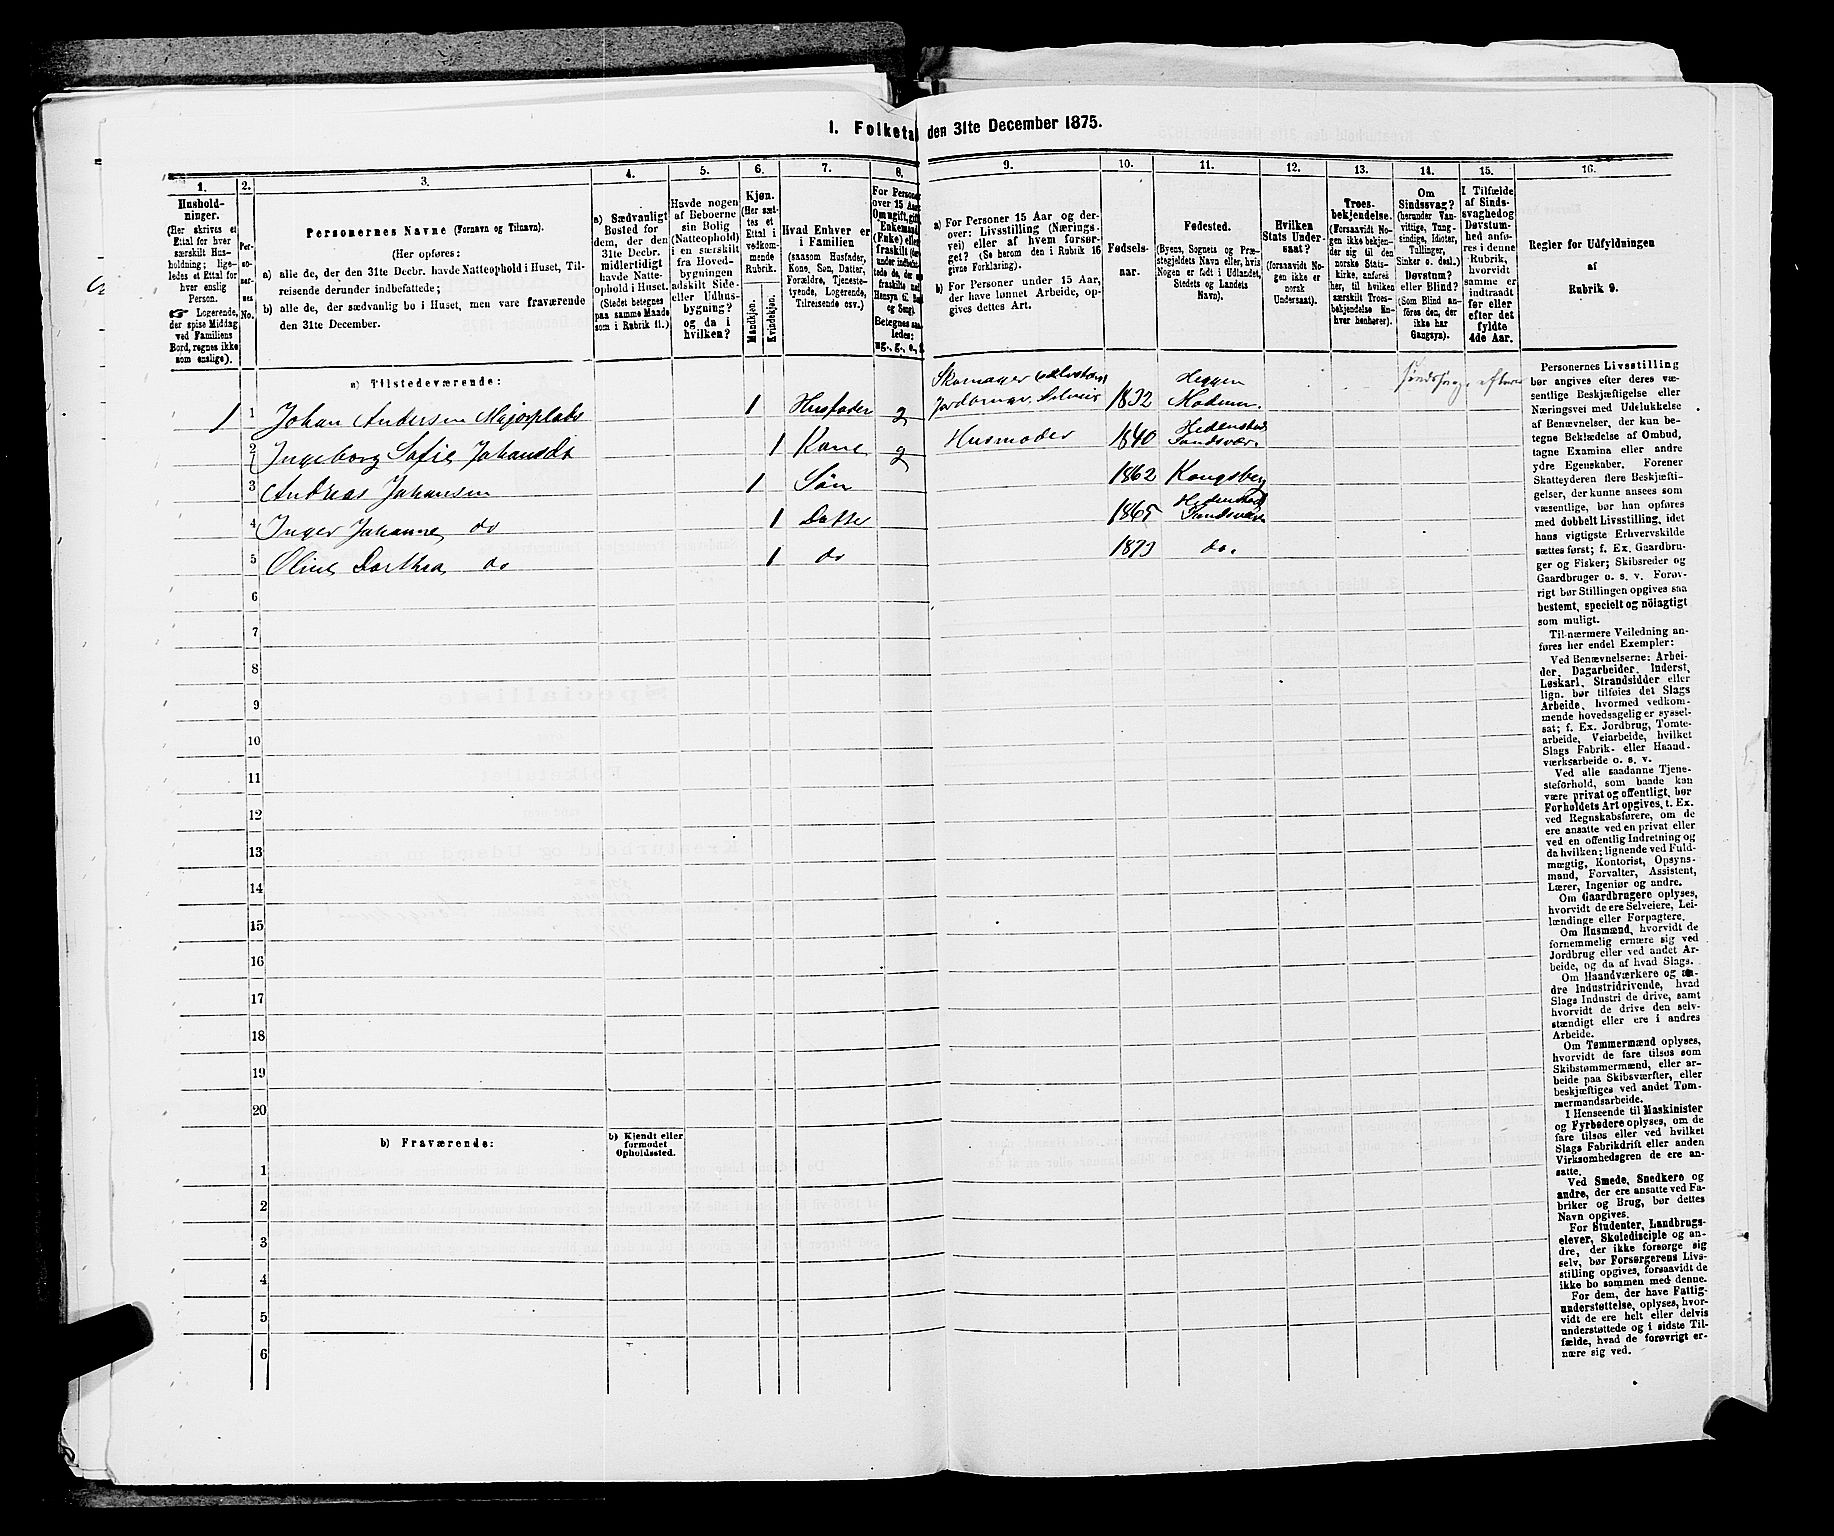 1. Folketal den 31te December 1875.
1. 2. 3. 4. 5. 6. 7. 8. 9. 10. 11. 12. 13. 14. 15. 16.
Hushold-
ninger.
(Her skrives et
Ettal for hver
særskilt Hus-
holdning; lige-
ledes et Ettal for
hver enslig
Person.
☞ Logerende,
der spise Middag
ved Familiens
Bord, regnes ikke
som enslige).
Per-
so-
ner-
nes
No.
Personernes Navne (Fornavn og Tilnavn).
(Her opføres:
a) alle de, der den 31te Decbr. havde Natteophold i Huset, Til-
reisende derunder indbefattede;
b) alle de, der sædvanlig bo i Huset, men vare fraværende
den 31te December.
a) Sædvanligt
Bosted for
dem, der den
31te Decbr.
midlertidigt
havde Natte-
ophold i Huset.
(Stedet betegnes
paa samme Maade
som i Rubrik 11.)
Havde nogen
af Beboerne
sin Bolig
(Natteophold)
i en særskilt
fra Hoved-
bygningen
adskilt Side-
eller Udhus-
bygning?
og da i
hvilken?
Kjøn.
(Her sæt-
tes et
Ettal i
vedkom-
mende
Rubrik.
Mandkjøn.
Kvindekjøn.
Hvad Enhver er
i Familien
(saasom Husfader,
Kone, Søn, Datter,
Forældre, Tjeneste-
tyende, Logerende,
Tilreisende osv.)
For Personer
over 15 Aar:
Om ugift, gift,
Enkemand
(Enke) eller
fraskilt
Betegnes saa-
ledes:
ug., g., e., f.
a) For Personer 15 Aar og der-
over: Livsstilling (Nærings-
vei) eller af hvem forsør-
get? (Se herom den i Rubrik 16
givne Forklaring).
b) For Personer under 15 Aar,
der have lønnet Arbeide, op-
gives dettes Art.
Fødsels-
aar.
Fødested.
(Byens, Sognets og Præ-
stegjeldets Navn eller, hvis
Nogen er født i Udlandet,
Stedets og Landets
Navn).
Hvilken
Stats Under-
saat?
(forsaavidt No-
gen ikke er
norsk
Undersaat).
Troes-
bekjendelse.
(Forsaavidt No-
gen ikke bekjen-
der sig til den
norske Stats-
kirke, anføres
her, til hvilken
særskilt Troes-
bekjendelse En-
hver henhører).
Om
Sindssvag?
(herunder Van-
vittige, Tung-
sindige, Idioter,
Tullinger,
Sinker o. desl.)
Døvstum?
eller Blind?
(Som Blind an-
føres den, der
ikke har
Gangsyn).
I Tilfælde
af Sinds-
svaghed og
Døvstum-
hed anfø-
res i denne
Rubrik,
hvorvidt
samme er
indtraadt
før eller
efter det
fyldte
4de Aar.
Regler for Udfyldningen
af
Rubrik 9.
a) Tilstedeværende:
1 1 Johan Andersen Majorplads 1 Husfader g Skomager Jordbruger Selveier 1832 Heggen Modum. Sindssvag efter
2 Ingeborg Sofie Johansdt 1 Kone g Husmoder 1840 Hedenstad Sandsvær.
3 Andreas Johansen 1 Søn 1862 Kongsberg
4 Inger Johanne do 1 Datter 1865 Hedenstad Sandsvær
5 Oline Dorthea do 1 do 1873 do.
6
7
8
9
10
11
12
13
14
15
16
17
18
19
20
b) Fraværende:
b) Kjendt eller
formodet
Opholdssted.
1
2
3
4
5
6
Personernes Livsstilling
bør angives efter deres væ-
sentlige Beskjæftigelse eller
Næringsvei med Udelukkelse
af Benævnelser, der kun be-
tegne Beklædelse af Ombud,
tagne Examina eller andre
ydre Egenskaber. Forener
Skatteyderen flere Beskjæfti-
gelser, der kunne ansees som
væsentlige, bør han opføres
med dobbelt Livsstilling, idet
hans vigtigste Erhvervskilde
sættes først; f. Ex. Gaardbru-
ger og Fisker; Skibsreder og
Gaardbruger o. s. v. Forøv-
rigt bør Stillingen opgives saa
bestemt, specielt og nöiagtigt
som muligt.
Til nærmere Veiledning an-
føres her endel Exempler:
Ved Benævnelserne: Arbei-
der, Dagarbeider, Inderst,
Løskarl, Strandsidder eller
lign. bør tilføies det Slags
Arbeide, hvormed vedkom-
mende hovedsagelig er syssel-
sat; f. Ex. Jordbrug, Tomte-
arbeide, Veiarbeide, hvilket
Slags Fabrik- eller Haand-
værksarbeide o. s. v.
Ved alle saadanne Tjene-
steforhold, som baade kan
være privat og offentligt, bør
Forholdets Art opgives, t. Ex.
ved Regnskabsførere, om de
ere ansatte ved en privat eller
ved en offentlig Indretning og
da hvilken; lignende ved Fuld-
mægtig, Kontorist, Opsyns-
mand, Forvalter, Assistent,
Lærer, Ingeniør og andre.
Om Gaardbrugere oplyses,
hvorvidt de ere Selveiere, Lei-
lændinge eller Forpagtere.
Om Husmænd, hvorvidt de
fornemmelig ernære sig ved
Jordbrug eller ved andet Ar-
beide, og da af hvad Slags.
Om Haandværkere og an-
dre Industridrivende, hvad
Slags Industri de drive, samt
hvorvidt de drive den selv-
stændigt eller ere i andres
Arbeide.
Om Tømmermænd oplyses,
hvorvidt de fare tilsøs som
Skibstømmermænd, eller ar-
beide paa Skibsværfter, eller
beskjæftiges ved andet Tøm-
mermandsarbeide.
I Henseende til Maskinister
og Fyrbødere oplyses, om de
fare tilsøs eller ved hvilket
Slags Fabrikdrift eller anden
Virksomhedsgren de ere an-
satte.
Ved Smede, Snedkere og
andre, der ere ansatte ved Fa-
briker og Brug, bør dettes
Navn opgives.
For Studenter, Landbrugs-
elever, Skoledisciple og an-
dre, der ikke forsørge sig
selv, bør Forsørgerens Livs-
stilling opgives, forsaavidt de
ikke bo sammen med denne.
For dem, der have Fattig-
understøttelse, oplyses, hvor-
vidt de ere helt eller delvis
understøttede og i sidste Til-
fælde, hvad de forøvrigt er-
nære sig ved.